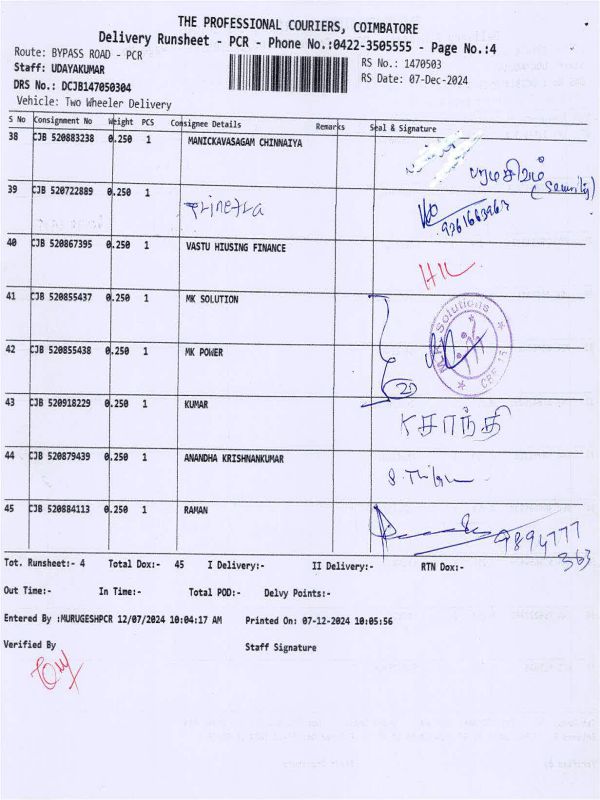 THE PROFESSIONAL COURIERS, COIMBATORE
Delivery Runsheet - PCR - Phone No.:0422-3505555 - Page No.:4
Route: BYPASS ROAD - PCR
RS No.: 1470503
Staff: UDAYAKUMAR
RS Date: 07-Dec-2024
DRS No.: DCJB147050304
Vehicle: Two Wheeler Delivery
S No Consignment No Weight PCS Consignee Details Remarks Seal & Signature
38 CJB 520883238 0.250 1 MANICKAVASAGAM CHINNAIYA
பரமசிவம்
(Security)
39 CJB 520722889 0.250 1
9361683963
40 CJB 520867395 0.250 1 VASTU HIUSING FINANCE
41 CJB 520855437 0.250 1 MK SOLUTION
M.K. Solutions
CBE 15
42 CJB 520855438 0.250 1 MK POWER
43 CJB 520918229 0.250 1 KUMAR
சாந்தி
44 CJB 520879439 0.250 1 ANANDHA KRISHNANKUMAR
45 CJB 520884113 0.250 1 RAMAN
9894777
363
Tot. Runsheet:- 4 Total Dox:- 45 I Delivery:- II Delivery:- RTN Dox:-
Out Time:- In Time:- Total POD:- Delvy Points:-
Entered By :MURUGESHPCR 12/07/2024 10:04:17 AM Printed On: 07-12-2024 10:05:56
Verified By Staff Signature